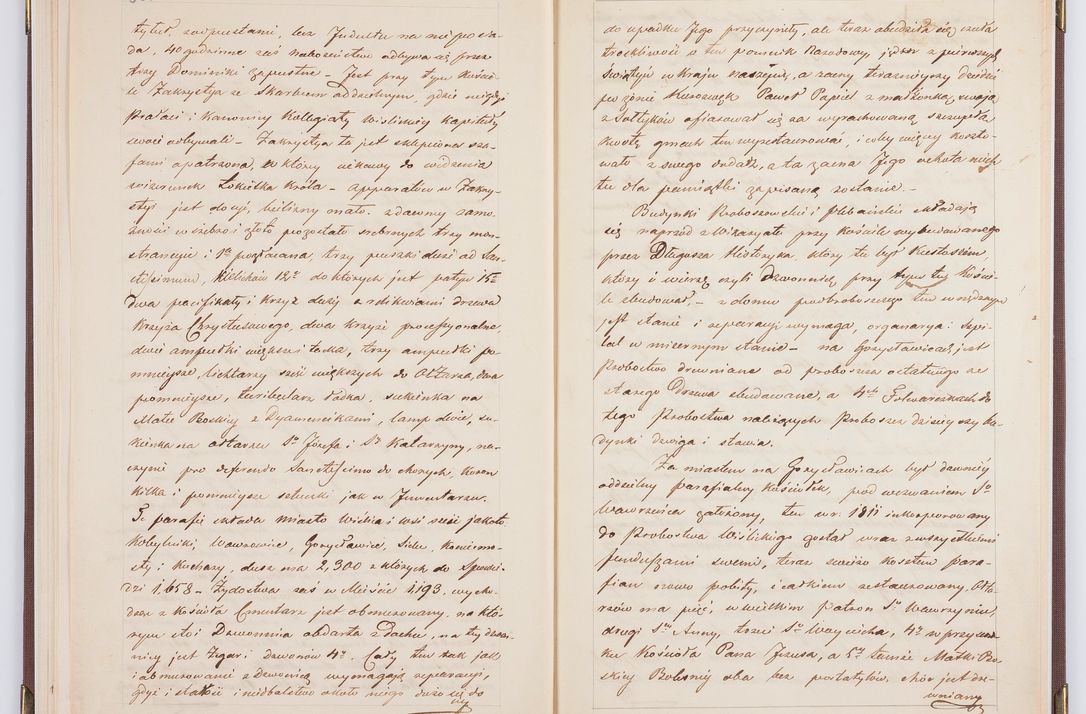 tytuł, zodpustami, lecz Indultu na nie posia-
da, 40 godzinne zaś nabożeństwo odbywa się przez
trzy Dominiki zapustne – Jest przy tym Koście-
le Zakrystja ze Skarbcem oddzielnym, gdzie niegdyś
Prałaci i Kanonicy Kollegiaty Wislickiej kapituły
swoie odbywali – Zakrystya ta jest sklepiona sza-
fami opatrzona, w której ciekawy do widzenia
wizerunek Łokietka Króla – apparatów w Zakry-
styi jest dosyć, bielizny mało. z dawney zamo-
żności w srebro i złoto pozostało srebrnych trzy mon-
strancyie i 1na pozłacana, trzy puszki dwie ad San-
ctissimum, Kielichów 12ć do których jest patyn 15ć
Dwa pacifikały i krzyż duży z relikwiami drzewa
Krzyża Chrystusowego, dwa krzyże processyonalne,
dwie ampułki większe i tacka, trzy ampułki po
mnieysze, lichtarzy sześć większych do Ołtarza, dwa
pomnieysze, turibularz łódka, sukienka na
Matce Boskiey z Dyamencikami, lamp dwie, su-
kienka na ołtarzu So Józefa i St Katarzyny, na-
czynie pro deferendo Sanctissimo do chorych, koron
kilka i pomnieysze sztuki jak w Inwentarzu.
Tę parafię składa miasto Wislica i wsi sześć jakoto
Kobylniki, Wawrowice, Gorysławice, Koniecmo-
sty i Kuchary, dusz ma 2,300 z których do Spowie-
dzi 1.658 – Żydostwa zaś w Mieście 1193. wycho-
dząc z Kościoła Cmentarz jest obmurowany, na któ-
rym stoi Dzwonnia obdarta z Dachu, na tej dzwon-
nicy jest Zegar i dzwonów 4ry. Cały ten zaś jak
i obmurowanie z Dzwonicą wymagają reparacyi,
gdyż i słabsi i niedbalstwo około niego dużo się do
do upadku Jego przyczyniły, ale teraz obudziła się czuła
troskliwość o ten pomnik Narodowy, jeden z pierwszych
świątyń w Kraju naszym, a zacny teraźnieyszy dziedzic
Kurozwęk Paweł Popiel z małżonką swoją
z Sołtyków ofiarował się za wyrachowaną szczupłą
kwotę gmach ten wyrestaurować, i choć więcey koszto-
wało z swego dodać, a ta zacna Jego ochota niech
tu dla pamiątki zapisaną zostanie. –
Budynki Proboszowskie i plebańskie składają
się naprzód z Wikaryatu przy Kościele wybudowanego
przez Długosza Historyka, który tu był Kustoszem,
który i wieżę czyli Dzwonnicę przy tym tej Kości-
le zbudował, – z domu podproboszczego ten w nędznym
jest stanie i reparacyi wymaga, organarya: Szpi-
tal w miernym stanie – na Gorysławicach jest
Probostwo drewniane od proboszcza ostatniego ze
starego Drzewa zbudowane, a 4ch Folwarczkach do
tego Probostwa należących Proboszcz dzisieyszy bu-
dynki dzwiga i stawia.
Za miastem na Gorysławicach był dawniey
oddzielny parafialny Kościołek, pod wezwaniem So
Wawrzeńca założony, ten w r. 1811 inkorporowany
do Probostwa Wislickiego został wraz z wszystkimi
funduszami swemi, teraz świeżo kosztem para-
fian nowo pobity, i całkiem zrestaurowany, Ołta-
rzów ma pięć, w wielkim patron So Wawrzyniec,
drugi So Anny, trzeci So Woyciecha, 4ty w przysion-
ku Kościoła Pana Jezusa, a 5ty tamże Matki Bo-
skiey Bolesney oba bez portatylów, chór jest dre-
wniany